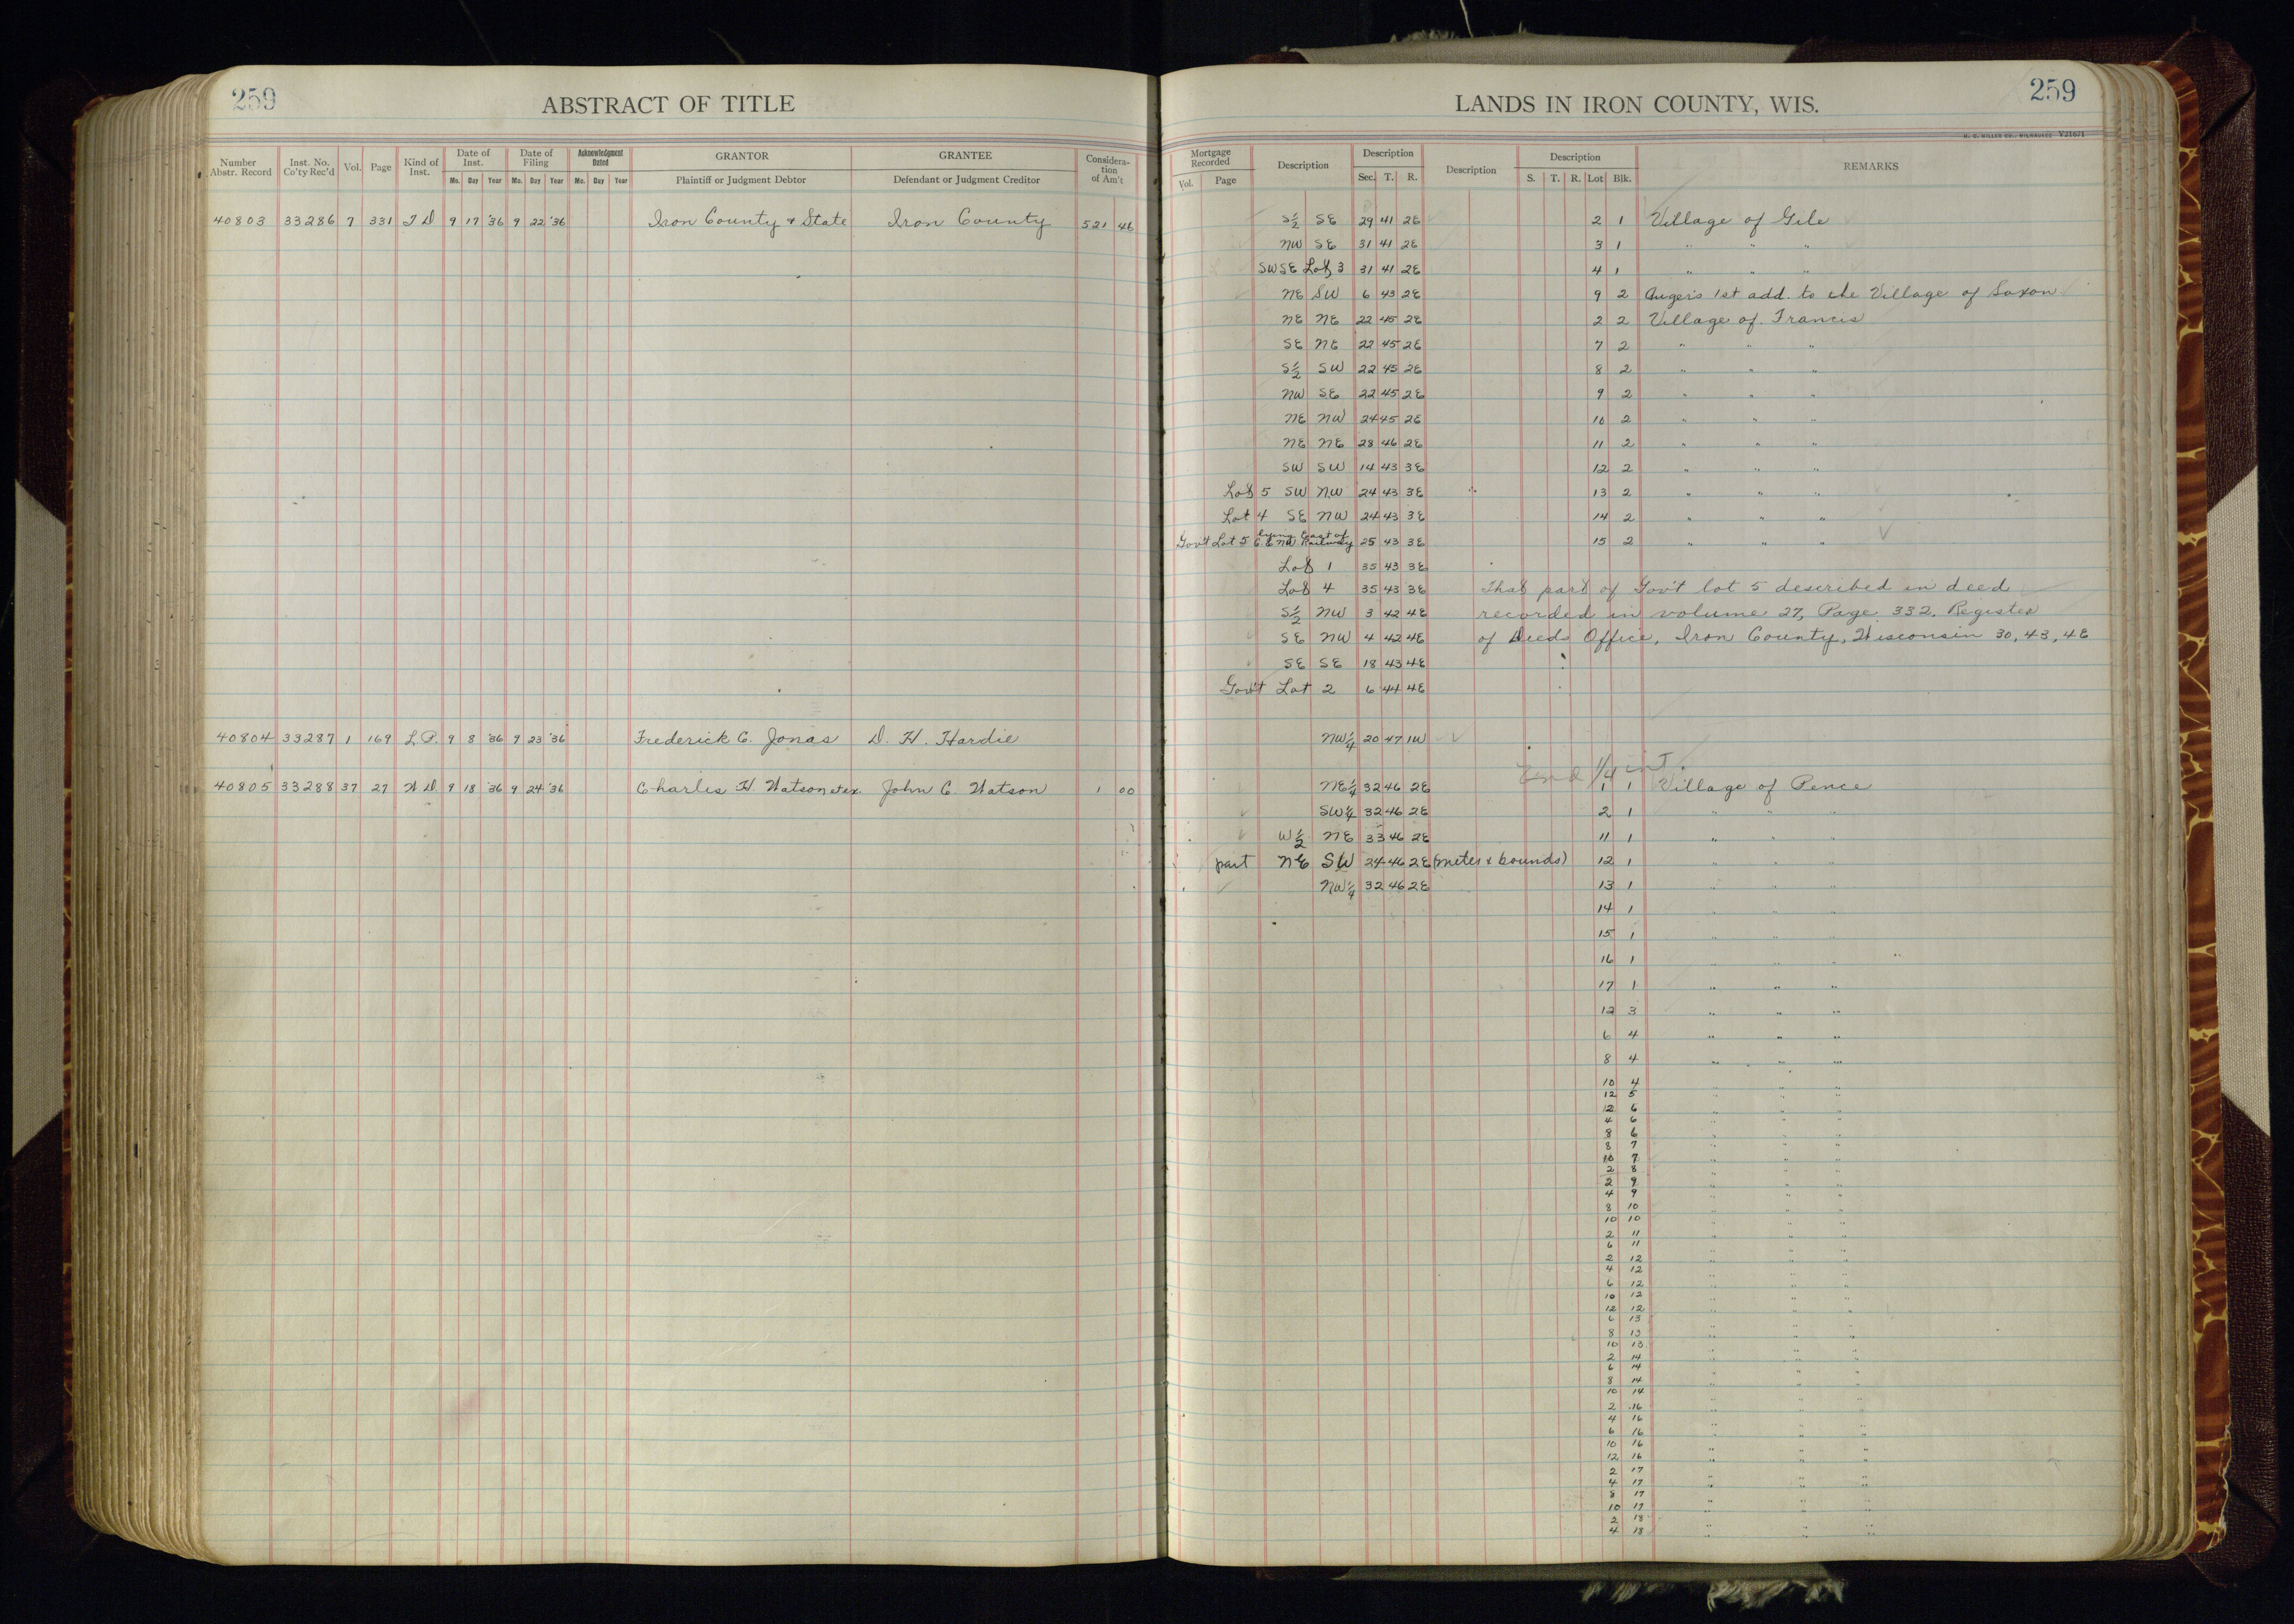 259 ABSTRACT OF TITLE
Number Abstr. Record Inst. No. Co'ty Rec'd Vol. Page Kind of Inst. Date of Inst. Mo. Day Year Date of Filing Mo. Day Year Acknowledgment Dated Mo. Day Year GRANTOR Plaintiff or Judgment Debtor GRANTEE Defendant or Judgment Creditor Considera-tion of Am't
40803 33286 7 331 T D 9 17 '36 9 22 '36 Iron County & State Iron County 521 46
40804 33287 1 169 L.P. 9 8 '36 9 23 '36 Frederick C. Jonas D. H. Hardie
40805 33288 37 27 W D 9 18 '36 9 24 '36 Charles H. Watson et ux. John C. Watson 1 00
LANDS IN IRON COUNTY, WIS. 259
H. C. MILLER CO., MILWAUKEE V21671
Mortgage Recorded Vol. Page Description Description Sec. T. R. Description Description S. T. R. Lot Blk. REMARKS
S½ SE 29 41 2E 2 1 Village of Gile
NW SE 31 41 2E 3 1 " " "
SW SE Lot 3 31 41 2E 4 1 " " "
NE SW 6 43 2E 9 2 1st add. to the Village of Saxon
NE NE 22 45 2E 2 2 Village of Francis
SE NE 22 45 2E 7 2 " " "
S½ SW 22 45 2E 8 2 " " "
NW SE 22 45 2E 9 2 " " "
NE NW 24 45 2E 10 2 " " "
NE NE 28 46 2E 11 2 " " "
SW SW 14 43 3E 12 2 " " "
Lot 5 SW NW 24 43 3E 13 2 " " "
Lot 4 SE NW 24 43 3E 14 2 " " "
Gov't Lot 5 lying East of C. & NW Railway 25 43 3E 15 2 " " "
Lot 1 35 43 3E
Lot 4 35 43 3E That part of Gov't lot 5 described in deed
S½ NW 3 42 4E recorded in volume 27, Page 332, Register
SE NW 4 42 4E of Deeds Office, Iron County, Wisconsin 30, 43, 4E
SE SE 18 43 4E
Gov't Lot 2 6 44 4E
NW¼ 20 47 1W
Und 1/4 int.
NE¼ 32 46 2E 1 1 Village of Pence
SW¼ 32 46 2E 2 1 " " "
W½ NE 33 46 2E 11 1 " " "
part NE SW 24 46 2E (metes & bounds) 12 1 " " "
NW¼ 32 46 2E 13 1 " " "
14 1 " " "
15 1 " " "
16 1 " " "
17 1 " " "
12 3 " " "
6 4 " " "
8 4 " " "
10 4 " " "
12 5 " " "
2 6 " " "
4 6 " " "
8 6 " " "
8 7 " " "
10 7 " " "
2 8 " " "
2 9 " " "
4 9 " " "
8 10 " " "
10 10 " " "
2 11 " " "
6 11 " " "
2 12 " " "
4 12 " " "
6 12 " " "
10 12 " " "
12 12 " " "
6 13 " " "
8 13 " " "
10 13 " " "
2 14 " " "
6 14 " " "
8 14 " " "
10 14 " " "
2 16 " " "
4 16 " " "
6 16 " " "
10 16 " " "
12 16 " " "
2 17 " " "
4 17 " " "
8 17 " " "
10 17 " " "
2 18 " " "
4 18 " " "